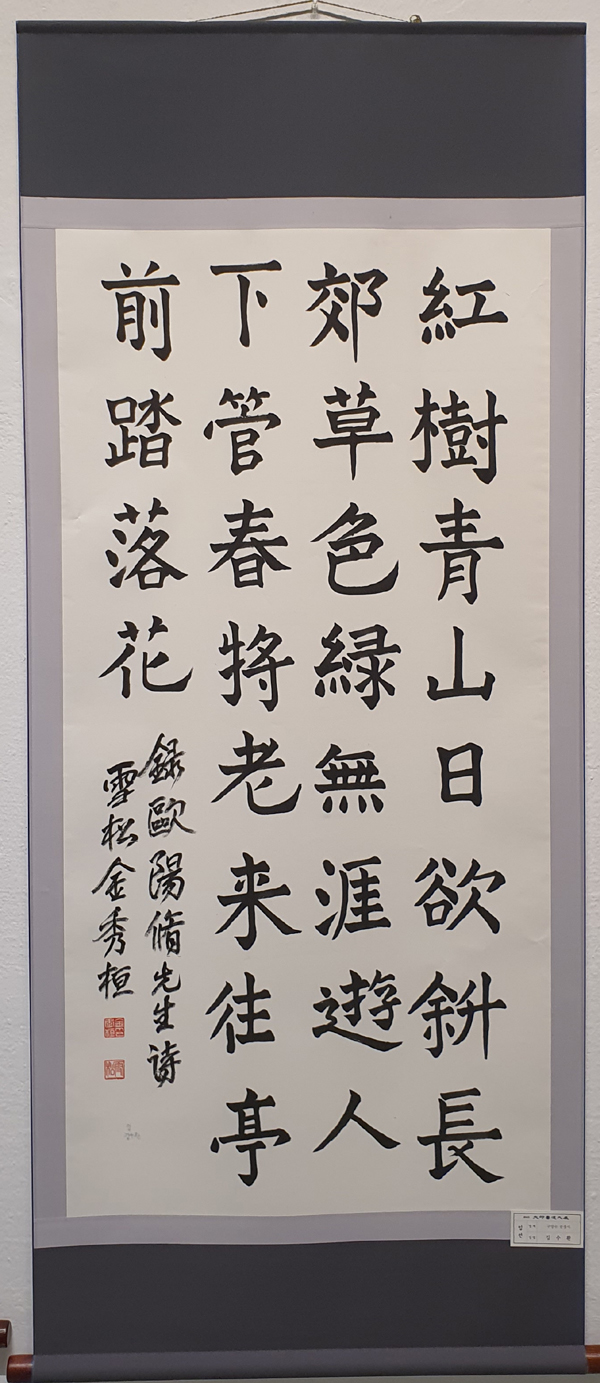 紅樹青山日欲斜長
郊草色緑無涯遊人
下管春将老来往亭
前踏落花
録歐陽脩先生詩
雪松金秀桓
입선
김수환